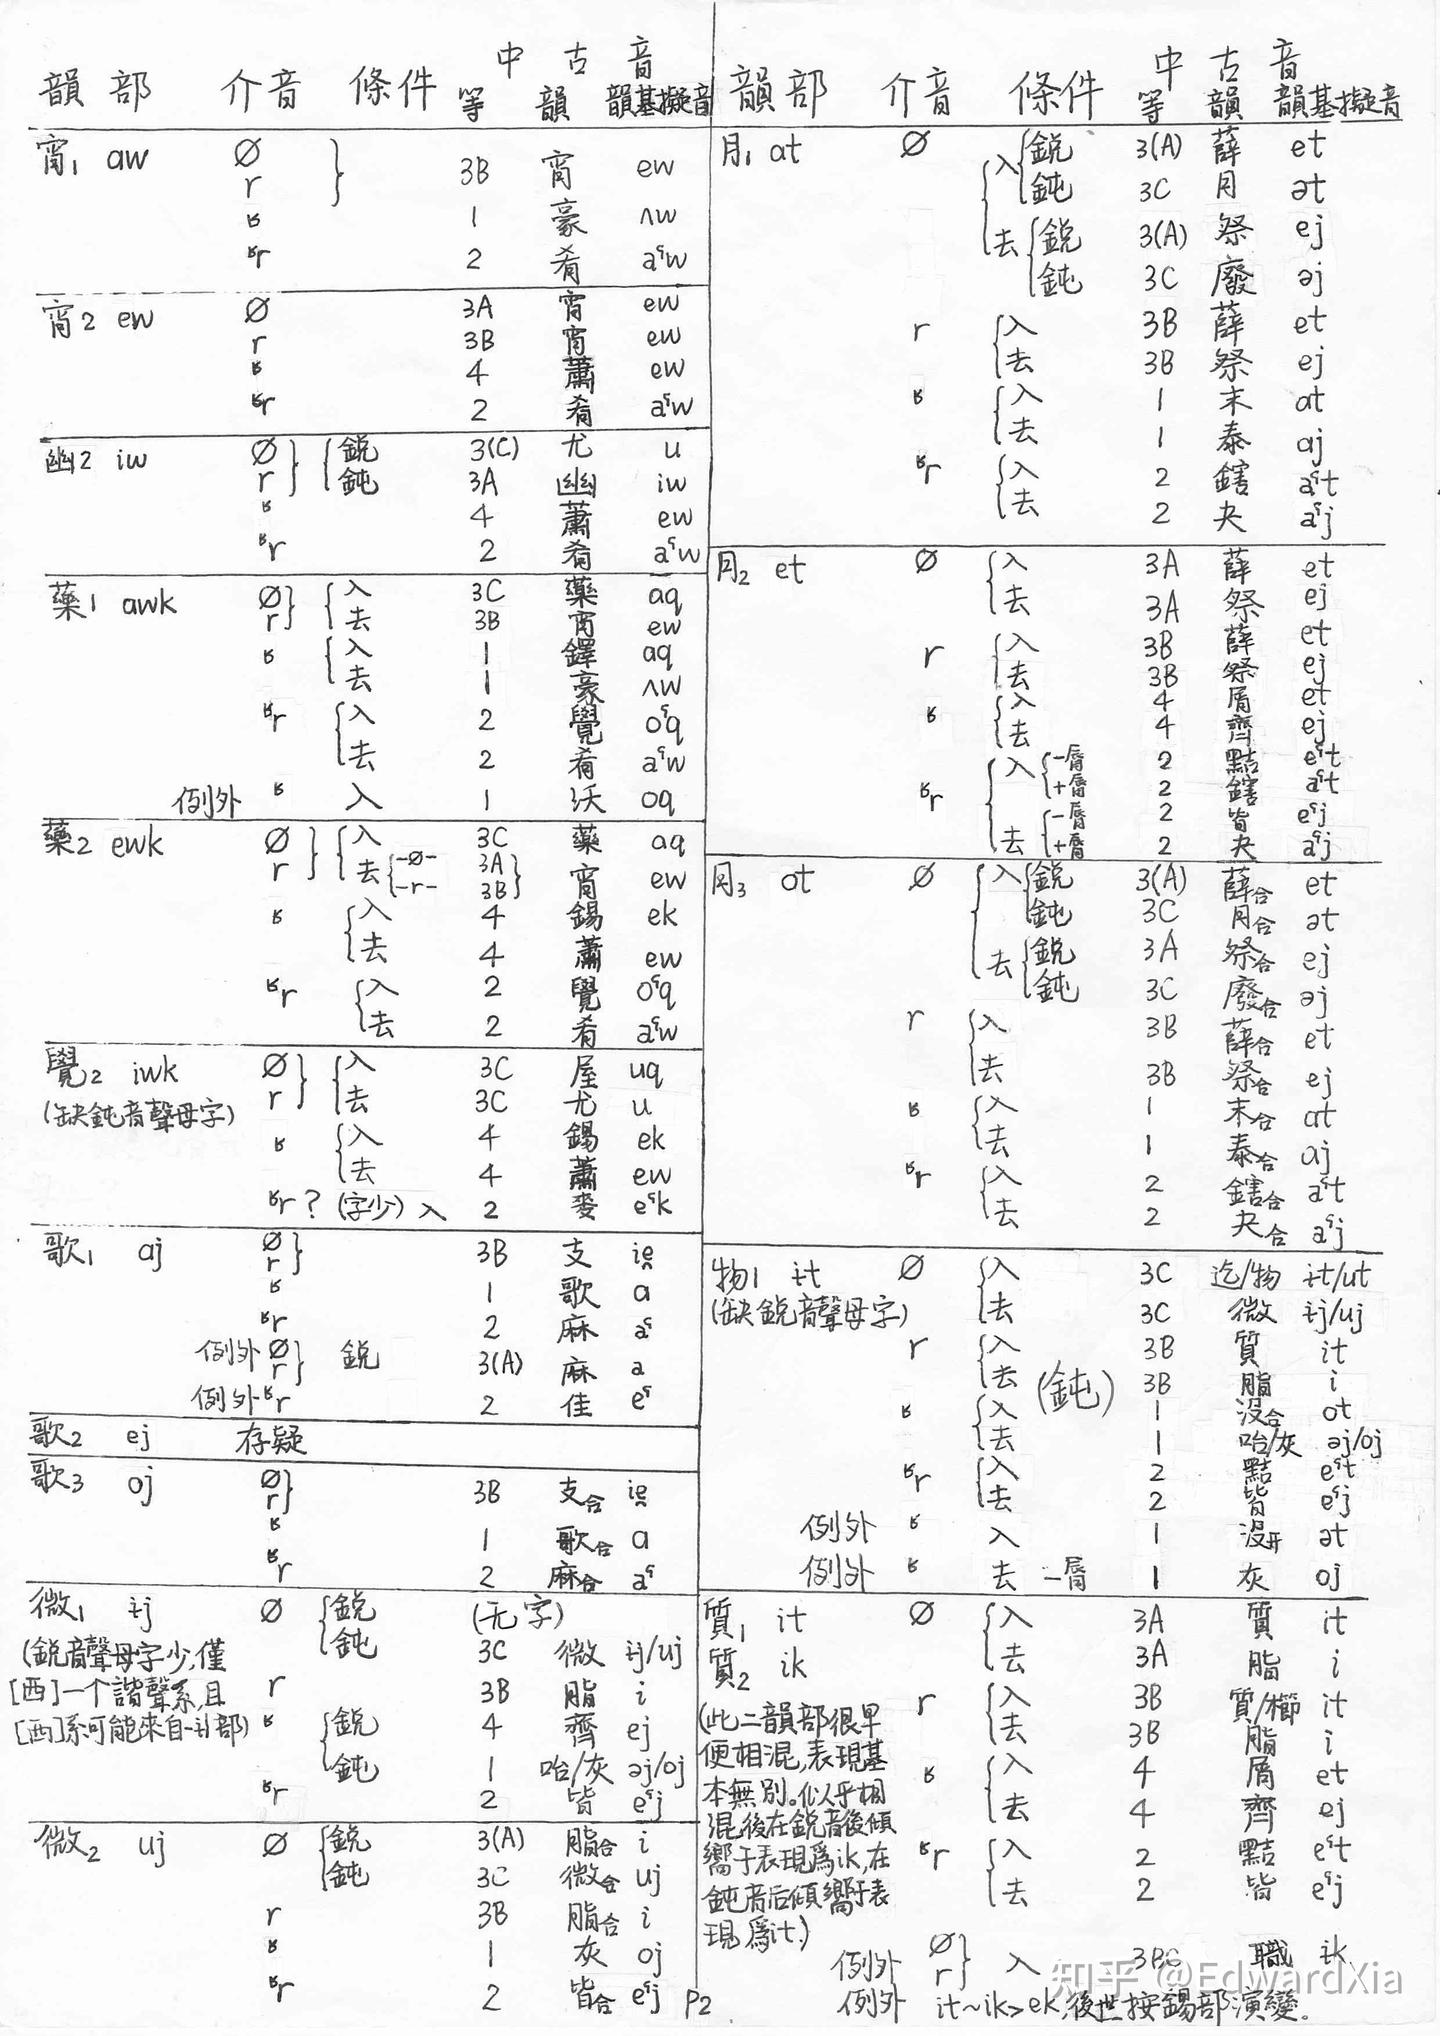 中 古 音
韻 部 介音 條件 等 韻 韻基擬音
宵1 aw ∅ } 3B 宵 ew
r
ʶ 1 豪 ʌw
ʶr 2 肴 aˤw
宵2 ew ∅ 3A 宵 ew
r 3B 宵 ew
ʶ 4 蕭 ew
ʶr 2 肴 aˤw
幽2 iw ∅ } { 銳 3(C) 尤 u
r 鈍 3A 幽 iw
ʶ 4 蕭 ew
ʶr 2 肴 aˤw
藥1 awk ∅ } { 入 3C 藥 aq
r 去 3B 宵 ew
ʶ { 入 1 鐸 aq
去 1 豪 ʌw
ʶr { 入 2 覺 oˤq
去 2 肴 aˤw
例外 ʶ 入 1 沃 oq
藥2 ewk ∅ } { 入 3C 藥 aq
r 去 { -∅- 3A } 宵 ew
-r- 3B
ʶ { 入 4 錫 ek
去 4 蕭 ew
ʶr { 入 2 覺 oˤq
去 2 肴 aˤw
覺2 iwk ∅ } { 入 3C 屋 uq
(缺鈍音聲母字) r 去 3C 尤 u
ʶ { 入 4 錫 ek
去 4 蕭 ew
ʶr ? (字少) 入 2 麥 eˤk
歌1 aj ∅ } 3B 支 ie̯
r
ʶ 1 歌 ɑ
ʶr 2 麻 aˤ
例外 ∅ } 銳 3(A) 麻 a
r
例外 ʶr 2 佳 eˤ
歌2 ej 存疑
歌3 oj ∅ } 3B 支合 ie̯
r
ʶ 1 歌合 ɑ
ʶr 2 麻合 aˤ
微1 ɨj ∅ { 銳 (无字)
(銳音聲母字少,僅 鈍 3C 微 ɨj/uj
[西]一个諧聲系,且 r 3B 脂 i
[西]系可能來自-ɨ部) ʶ { 銳 4 齊 ej
鈍 1 咍/灰 əj/oj
ʶr 2 皆 eˤj
微2 uj ∅ { 銳 3(A) 脂合 i
鈍 3C 微合 uj
r 3B 脂合 i
ʶ 1 灰 oj
ʶr 2 皆合 eˤj
P2
中 古 音
韻部 介音 條件 等 韻 韻基擬音
月1 at ∅ { 入 { 銳 3(A) 薛 et
鈍 3C 月 ət
去 { 銳 3(A) 祭 ej
鈍 3C 廢 əj
r { 入 3B 薛 et
去 3B 祭 ej
ʶ { 入 1 末 ɑt
去 1 泰 ɑj
ʶr { 入 2 鎋 aˤt
去 2 夬 aˤj
月2 et ∅ { 入 3A 薛 et
去 3A 祭 ej
r { 入 3B 薛 et
去 3B 祭 ej
ʶ { 入 4 屑 et
去 4 齊 ej
ʶr { 入 { -脣 2 黠 eˤt
+脣 2 鎋 aˤt
去 { -脣 2 皆 eˤj
+脣 2 夬 aˤj
月3 ot ∅ { 入 { 銳 3(A) 薛合 et
鈍 3C 月合 ət
去 { 銳 3A 祭合 ej
鈍 3C 廢合 əj
r { 入 3B 薛合 et
去 3B 祭合 ej
ʶ { 入 1 末合 ɑt
去 1 泰合 ɑj
ʶr { 入 2 鎋合 aˤt
去 2 夬合 aˤj
物1 ɨt ∅ { 入 3C 迄/物 ɨt/ut
(缺銳音聲母字) 去 3C 微 ɨj/uj
r { 入 3B 質 it
去 (鈍) 3B 脂 i
ʶ { 入 1 沒合 ot
去 1 咍/灰 əj/oj
ʶr { 入 2 黠 eˤt
去 2 皆 eˤj
例外 ʶ 入 1 沒開 ət
例外 ʶ 去 -脣 1 灰 oj
質1 it ∅ { 入 3A 質 it
質2 ik 去 3A 脂 i
(此二韻部很早 r { 入 3B 質/櫛 it
便相混,表現基 去 3B 脂 i
本無別。似乎相 ʶ { 入 4 屑 et
混後在銳音後傾 去 4 齊 ej
嚮于表現爲ik,在 ʶr { 入 2 黠 eˤt
鈍音后傾嚮于表 去 2 皆 eˤj
現爲it.)
例外 ∅ } 入 3BC 職 ɨk
r
例外 it~ik>ek,後世按錫部演變。
知乎 @EdwardXia